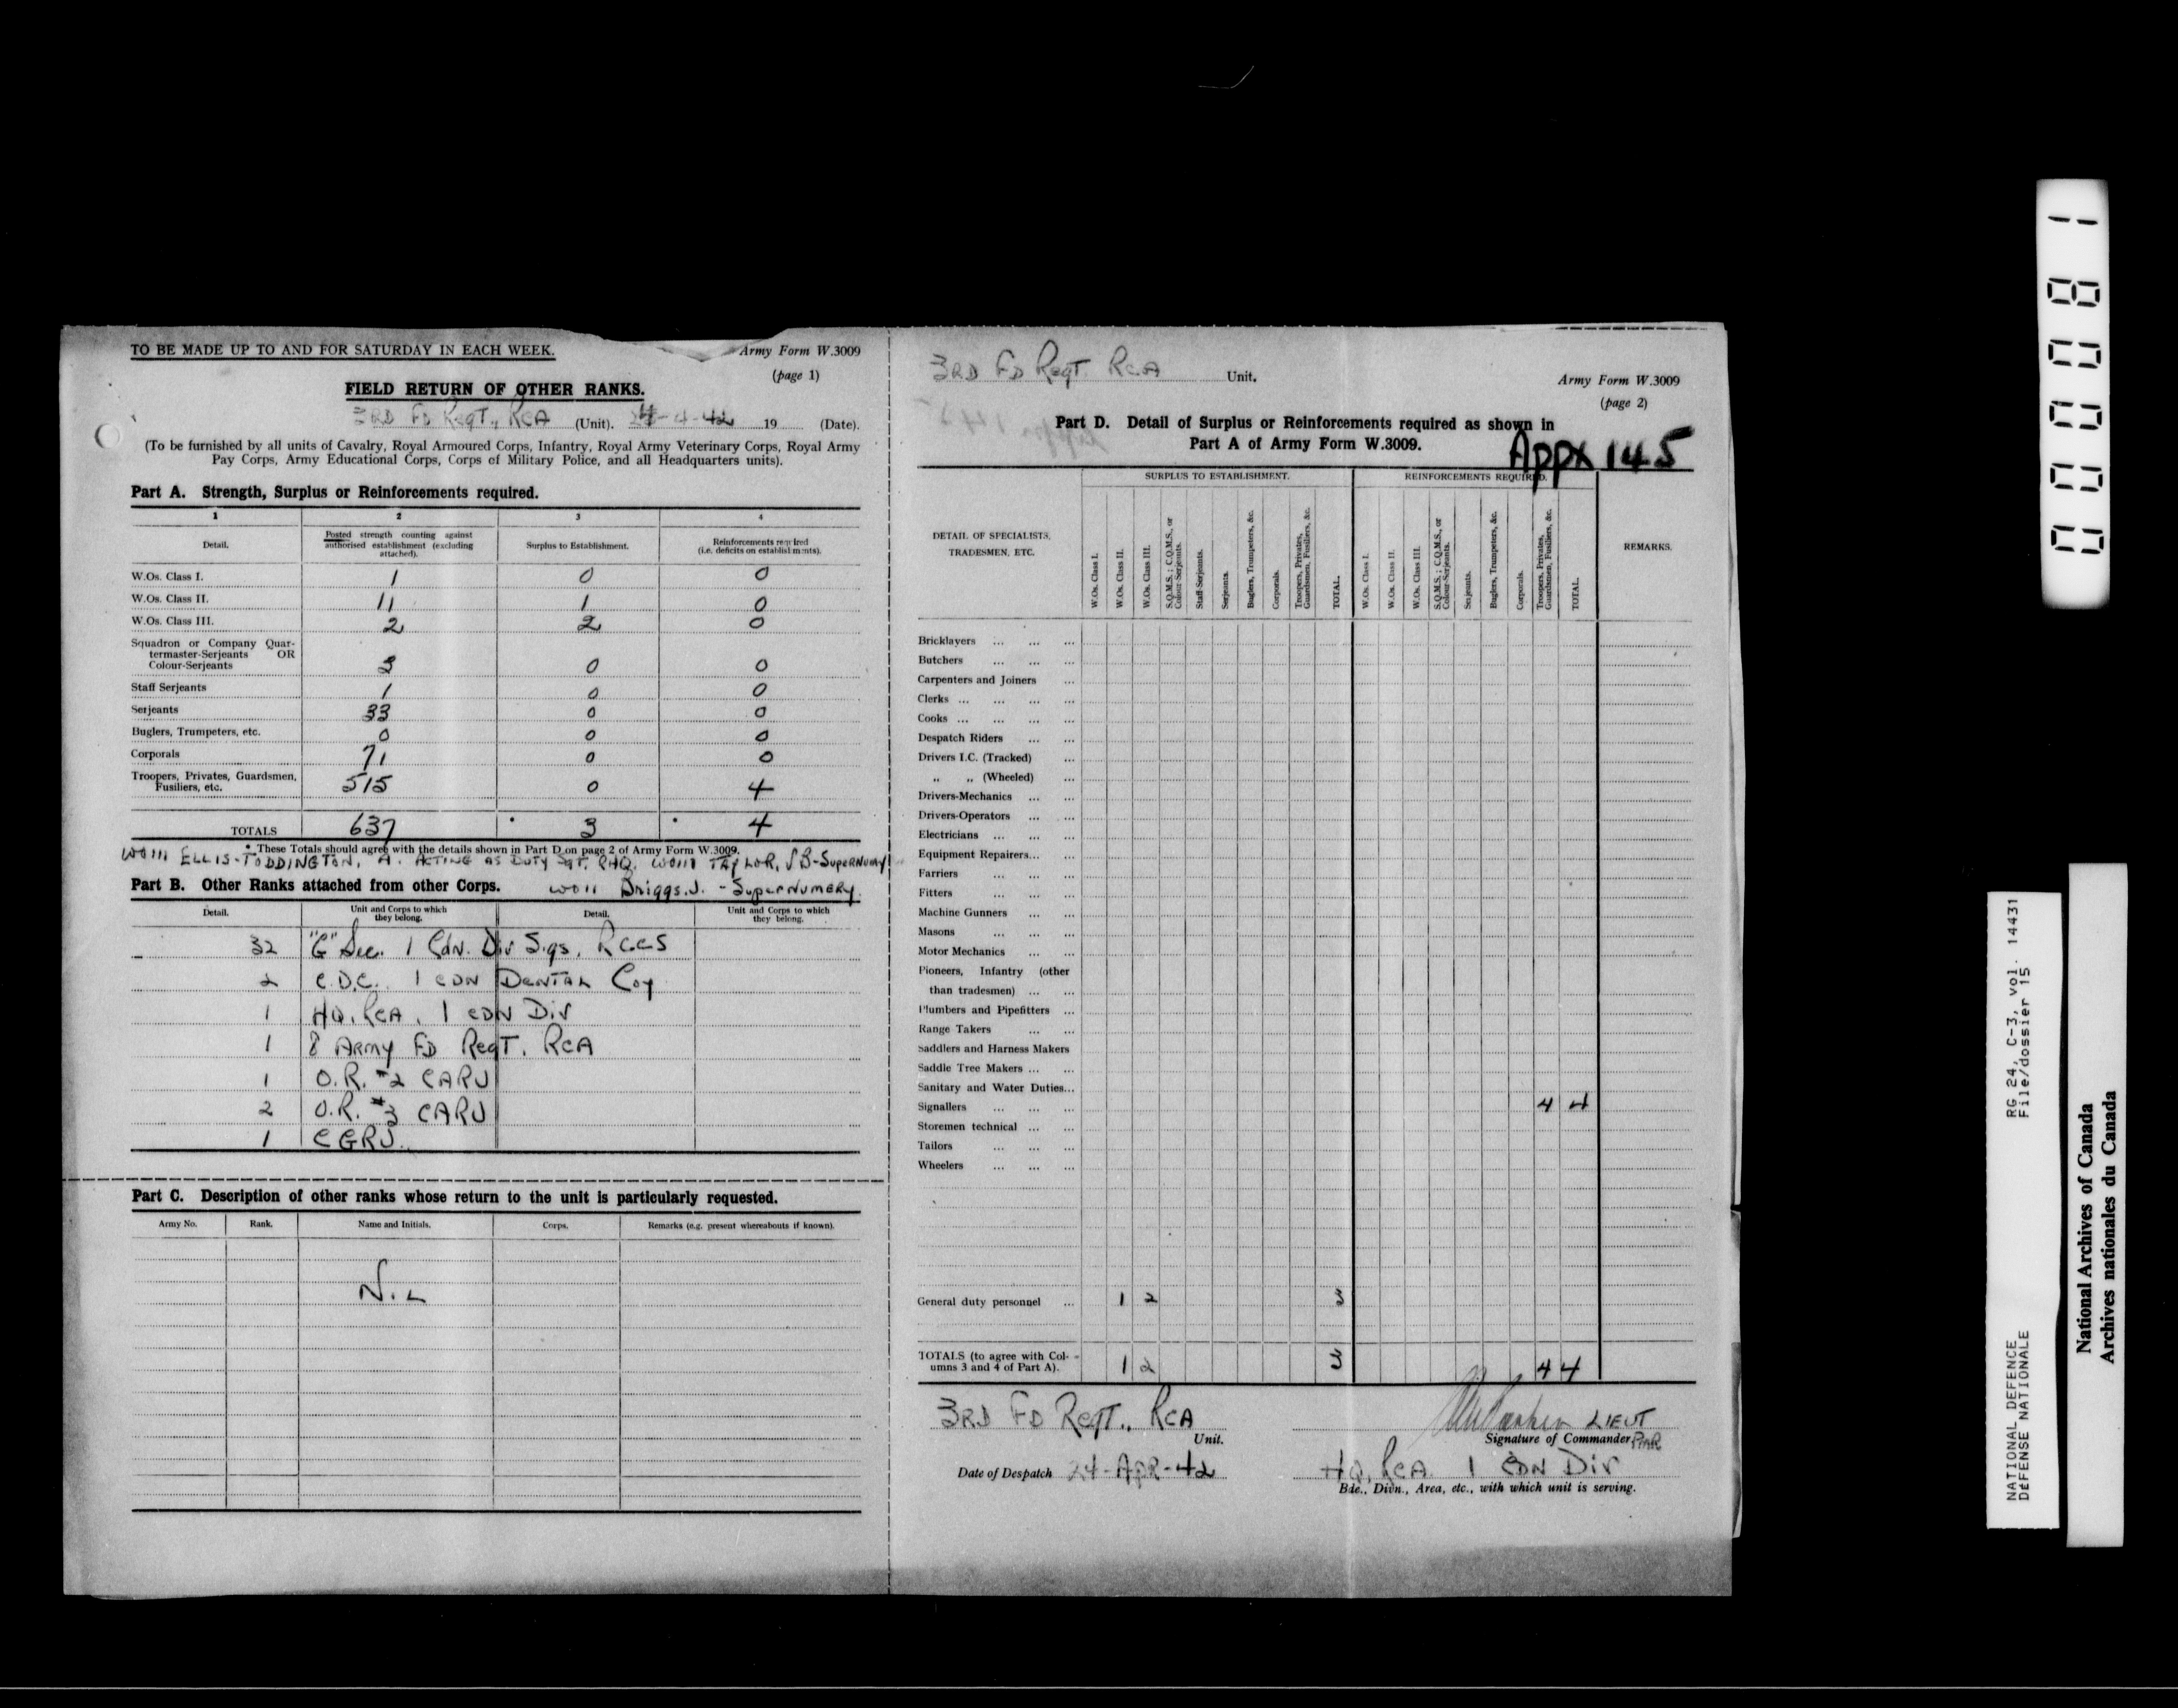 TO BE MADE UP TO AND FOR SATURDAY IN EACH WEEK.
Army Form W.3009
(page 1)
FIELD RETURN OF OTHER RANKS.
3RD FD REGT., RCA (Unit). 4-42 19 (Date).
(To be furnished by all units of Cavalry, Royal Armoured Corps, Infantry, Royal Army Veterinary Corps, Royal Army
Pay Corps, Army Educational Corps, Corps of Military Police, and all Headquarters units).
Part A. Strength, Surplus or Reinforcements required.
1 2 3 4
Detail. Posted strength counting against authorised establishment (excluding attached). Surplus to Establishment. Reinforcements required (i.e. deficits on establishments).
W.Os. Class I. 1 0 0
W.Os. Class II. 11 1 0
W.Os. Class III. 2 2 0
Squadron or Company Quar-
termaster-Serjeants OR
Colour-Serjeants 3 0 0
Staff Serjeants 1 0 0
Serjeants 33 0 0
Buglers, Trumpeters, etc. 0 0 0
Corporals 71 0 0
Troopers, Privates, Guardsmen,
Fusiliers, etc. 515 0 4
TOTALS 637 * 3 * 4
* These Totals should agree with the details shown in Part D on page 2 of Army Form W.3009.
WOIII ELLIS-TODDINGTON, A. ACTING AS DUTY SGT. RHQ. WOIII TAYLOR, JB-SUPERNUMY
Part B. Other Ranks attached from other Corps. WOII Briggs. J. - SUPERNUMERY.
Detail. Unit and Corps to which they belong. Detail. Unit and Corps to which they belong.
32 "E" Sec. 1 Cdn. Div Sigs, RCCS
2 C.D.C. 1 CDN DENTAL Coy
1 HQ. RCA. 1 CDN DIV
1 8 ARMY FD REGT. RCA
1 O.R. #2 CARU
2 O.R. #3 CARU
1 CGRU.
Part C. Description of other ranks whose return to the unit is particularly requested.
Army No. Rank. Name and Initials. Corps. Remarks (e.g. present whereabouts if known).
NIL
3RD FD REGT RCA Unit.
Army Form W.3009
(page 2)
Part D. Detail of Surplus or Reinforcements required as shown in
Part A of Army Form W.3009.
Appx 145
SURPLUS TO ESTABLISHMENT. REINFORCEMENTS REQUIRED.
DETAIL OF SPECIALISTS,
TRADESMEN, ETC.
W.Os. Class I.
W.Os. Class II.
W.Os. Class III.
S.Q.M.S.; C.Q.M.S., or Colour-Serjeants.
Staff-Serjeants.
Serjeants.
Buglers, Trumpeters, &c.
Corporals.
Troopers, Privates, Guardsmen, Fusiliers, &c.
TOTAL.
W.Os. Class I.
W.Os. Class II.
W.Os. Class III.
S.Q.M.S.; C.Q.M.S., or Colour-Serjeants.
Serjeants.
Buglers, Trumpeters, &c.
Corporals.
Troopers, Privates, Guardsmen, Fusiliers, &c.
TOTAL.
REMARKS.
Bricklayers ... ... ...
Butchers ... ... ...
Carpenters and Joiners ...
Clerks ... ... ... ...
Cooks ... ... ... ...
Despatch Riders ... ...
Drivers I.C. (Tracked) ...
,, ,, (Wheeled) ...
Drivers-Mechanics ... ...
Drivers-Operators ... ...
Electricians ... ... ...
Equipment Repairers... ...
Farriers ... ... ...
Fitters ... ... ...
Machine Gunners ... ...
Masons ... ... ...
Motor Mechanics ... ...
Pioneers, Infantry (other
than tradesmen) ... ...
Plumbers and Pipefitters ...
Range Takers ... ...
Saddlers and Harness Makers
Saddle Tree Makers ... ...
Sanitary and Water Duties...
Signallers ... ... ... 4 4
Storemen technical ... ...
Tailors ... ... ...
Wheelers ... ... ...
General duty personnel ... 1 2 3
TOTALS (to agree with Col-
umns 3 and 4 of Part A). 1 2 3 4 4
3RD FD REGT., RCA
Unit.
LIEUT
Signature of Commander.
Date of Despatch 24-APR-42
HQ. RCA 1 CDN DIV
Bde., Divn., Area, etc., with which unit is serving.
00081
RG 24, C-3, vol. 14431
File/dossier 15
NATIONAL DEFENCE
DÉFENSE NATIONALE
National Archives of Canada
Archives nationales du Canada